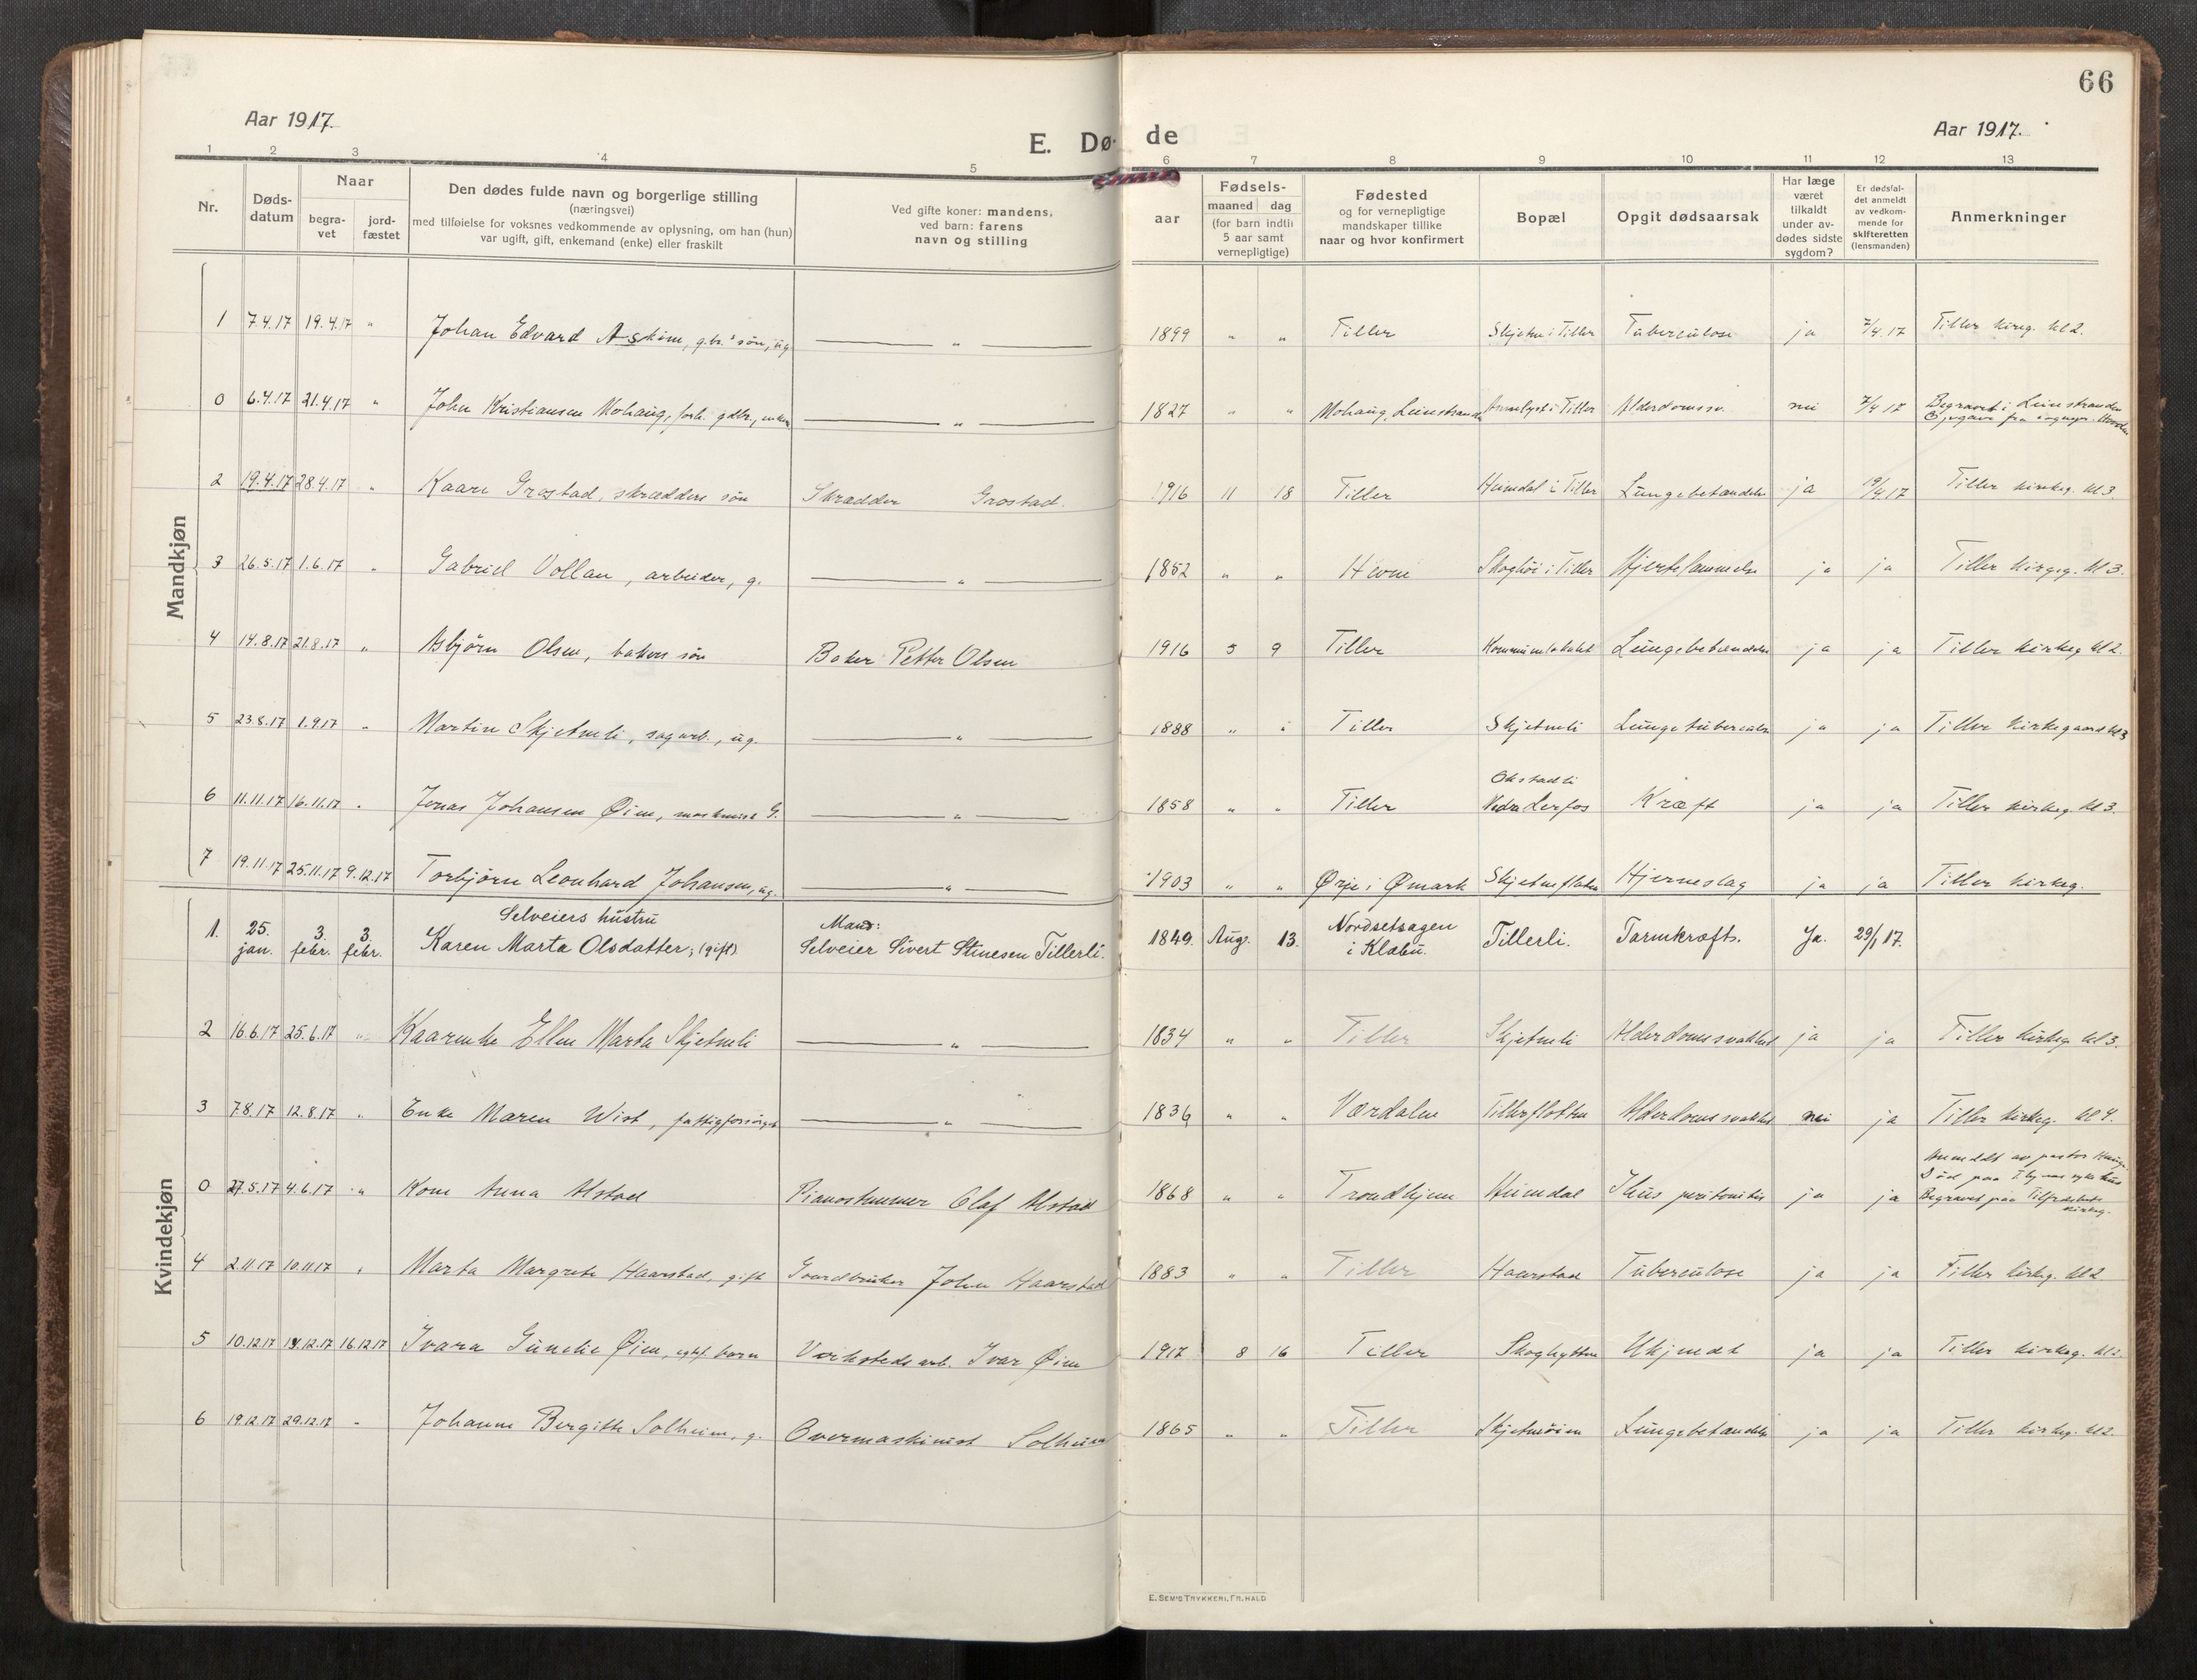 66
Aar 1917.
E. Dø de
Aar 1917.
1 2 3 4 5 6 7 8 9 10 11 12 13
Nr.
Døds-
datum
Naar
begra-
vet
jord-
fæstet
Den dødes fulde navn og borgerlige stilling
(næringsvei)
med tilføielse for voksnes vedkommende av oplysning, om han (hun)
var ugift, gift, enkemand (enke) eller fraskilt
Ved gifte koner: mandens,
ved barn: farens
navn og stilling
aar
Fødsels-
maaned dag
(for barn indtil
5 aar samt
vernepligtige)
Fødested
og for vernepligtige
mandskaper tillike
naar og hvor konfirmert
Bopæl
Opgit dødsaarsak
Har læge
været
tilkaldt
under av-
dødes sidste
sygdom?
Er dødsfal-
det anmeldt
av vedkom-
mende for
skifteretten
(lensmanden)
Anmerkninger
Mandkjøn
1 7.4.17 19.4.17 " Johan Edvard Askim, g.br.s søn, ug. " 1899 " " Tiller Skjetne i Tiller Tuberculose ja 7/4 17 Tiller kirkeg. kl 2.
0 6.4.17 21.4.17 " John Kristiansen Mohaug, forh. gdbr., enkem. " 1827 " " Mohaug, Leinstranden i Tiller Alderdomssv. nei 7/4 17 Begravet i Leinstranden
2 19.4.17 28.4.17 " Kaare Grostad, skrædders søn Skrædder Grostad. 1916 11 18 Tiller Heimdal i Tiller Lungebetændelse ja 19/4 17 Tiller kirkeg. kl 3.
3 26.5.17 1.6.17 " Gabriel Vollan, arbeider, g. " 1852 " " Hevne Skoghøi i Tiller Hjertelammelse ja ja Tiller kirgeg. kl 3.
4 14.8.17 21.8.17 " Asbjørn Olsen, bakers søn Baker Petter Olsen 1916 5 9 Tiller Kommunelokalet Lungebetændelse ja ja Tiller kirkeg kl 2.
5 23.8.17 1.9.17 " Martin Skjetneli, sagarb., ug. " 1888 " " Tiller Skjetneli Lungetuberculose ja ja Tiller kirkegaard kl 3
6 11.11.17 16.11.17 " Jonas Johansen Øien, maskinist G. " 1858 " " Tiller Okstadli
Nedre Lerfos Kræft ja ja Tiller kirkeg. kl 3.
7 19.11.17 25.11.17 9.12.17 Torbjørn Leonhard Johansen, ug. " 1903 " " Ørje i Ømark Skjetneflaten Hjerneslag ja ja Tiller kirkeg.
Kvindekjøn
1. 25.
jan. 3.
febr. 3.
febr. Selveiers hustru
Karen Marta Olsdatter; (gift). Mand:
Selveier Sivert Stinesen Tillerli. 1849. Aug. 13. Nordsetsagen
i Klæbu. Tillerli. Tarmkræft. Ja. 29/1 17.
2 16.6.17 25.6.17 " Kaarenke Ellen Marta Skjetneli " 1834 " " Tiller Skjetneli Alderdomssvakhet ja ja Tiller kirkeg kl 3.
3 7.8.17 12.8.17 " Enke Maren Wist, fattigforsørget " 1836 " " Værdalen Tillerflotten Alderdomssvakhet nei ja Tiller kirkeg. kl 4.
0 27.5.17 4.6.17 " Kone Anna Alstad Pianostemmer Olaf Alstad 1868 " " Trondhjem Heimdal Ileus peritonitis ja ja Anmeldt av pastor
Død paa Thjems sykehus
Begravet paa Tilfredshet
kirkeg.
4 2.11.17 10.11.17 " Marta Margrete Haarstad, gift Gaardbruker John Haarstad 1883 " " Tiller Haarstad Tuberculose ja ja Tiller kirkeg. kl 2
5 10.12.17 14.12.17 16.12.17 Ivara Gunelie Øien, egtef. barn Verksteds arb. Ivar Øien 1917 8 16 Tiller Skoghytten Ukjendt ja ja Tiller kirkeg. kl 2.
6 19.12.17 29.12.17 " Johanne Bergitte Solheim, g. Overmaskinist Solheim 1865 " " Tiller Skjetnøien Lungebetændelse ja ja Tiller kirkeg. kl 2.
E. SEM'S TRYKKERI, FR. HALD